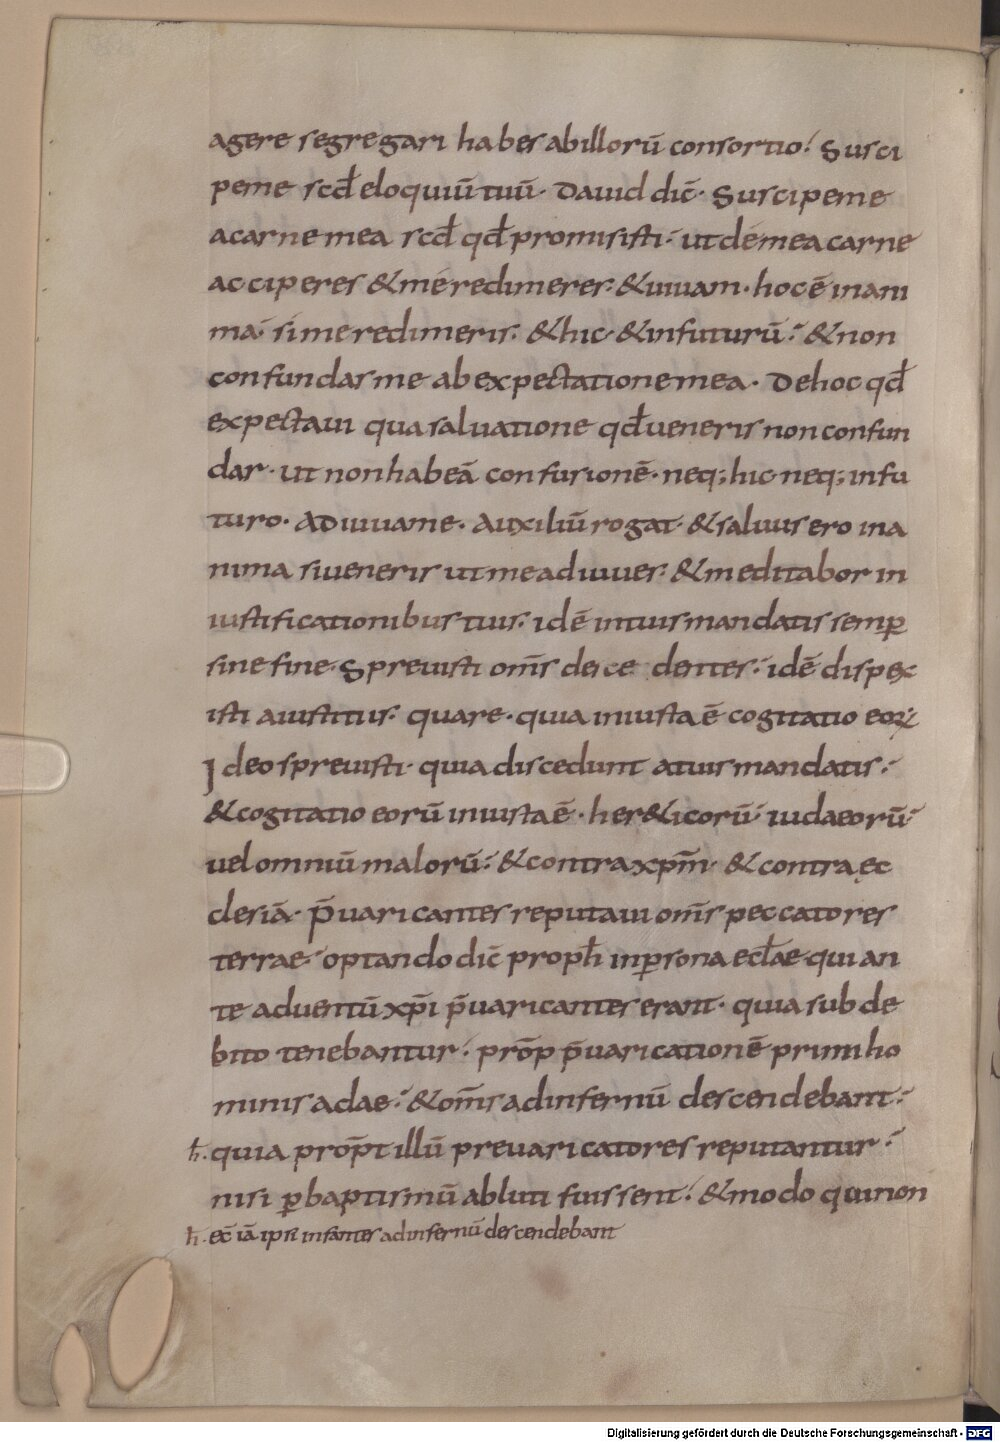 agere segregari habes abillorū consortio. Susci
peme scđ eloquiū tuū. Dauid dic̄. Suscipeme
acarne mea scđ qđ promisisti. ut démea carne
acciperes & mé redimeres. & uiuam. hoc ē inani
ma. sí me redimeris. & hic & infuturū. & non
confundas me ab expectatione mea. De hoc qđ
expectaui qua saluatione qđ ueneris non confun
dar. ut non habeā confusionē. neq; hic neq; infu
turo. Adiuuame. Auxiliū rogat. & saluus ero in a
nima siueneris ut me adiuues. & meditabor in
iustificationibus tuis. idē intuis mandatis semp̄
sine fine. Spreuisti om̄s desce dentes. idē dispex
isti aiustitiis. quare. quia iniusta ē cogitatio eoꝝ
Ideo spreuisti. quia discedunt atuis mandatis.
& cogitatio eorū iniusta ē. her&icorū. iudaeorū.
uel omniū malorū. & contra xp̄m. & contra ec
clesiā. p̄uaricantes reputaui om̄s peccatores
terrae. optando dic̄ proph̄ inp̱sona ecl̄ae. qui an
te aduentū xp̄i p̄uaricantes erant. quia sub de
bito tenebantur. prōp p̄uaricationē primi ho
minis adae. & om̄s adinfernū descendebant.
h̄. quia prop̄t illū preuaricatores reputantur.
nisi p̱ baptismū abluti fuissent. & modo qui non
h̄. ec̄ iā ipsi infantes adinfernū descendebant
Digitalisierung gefördert durch die Deutsche Forschungsgemeinschaft - DFG